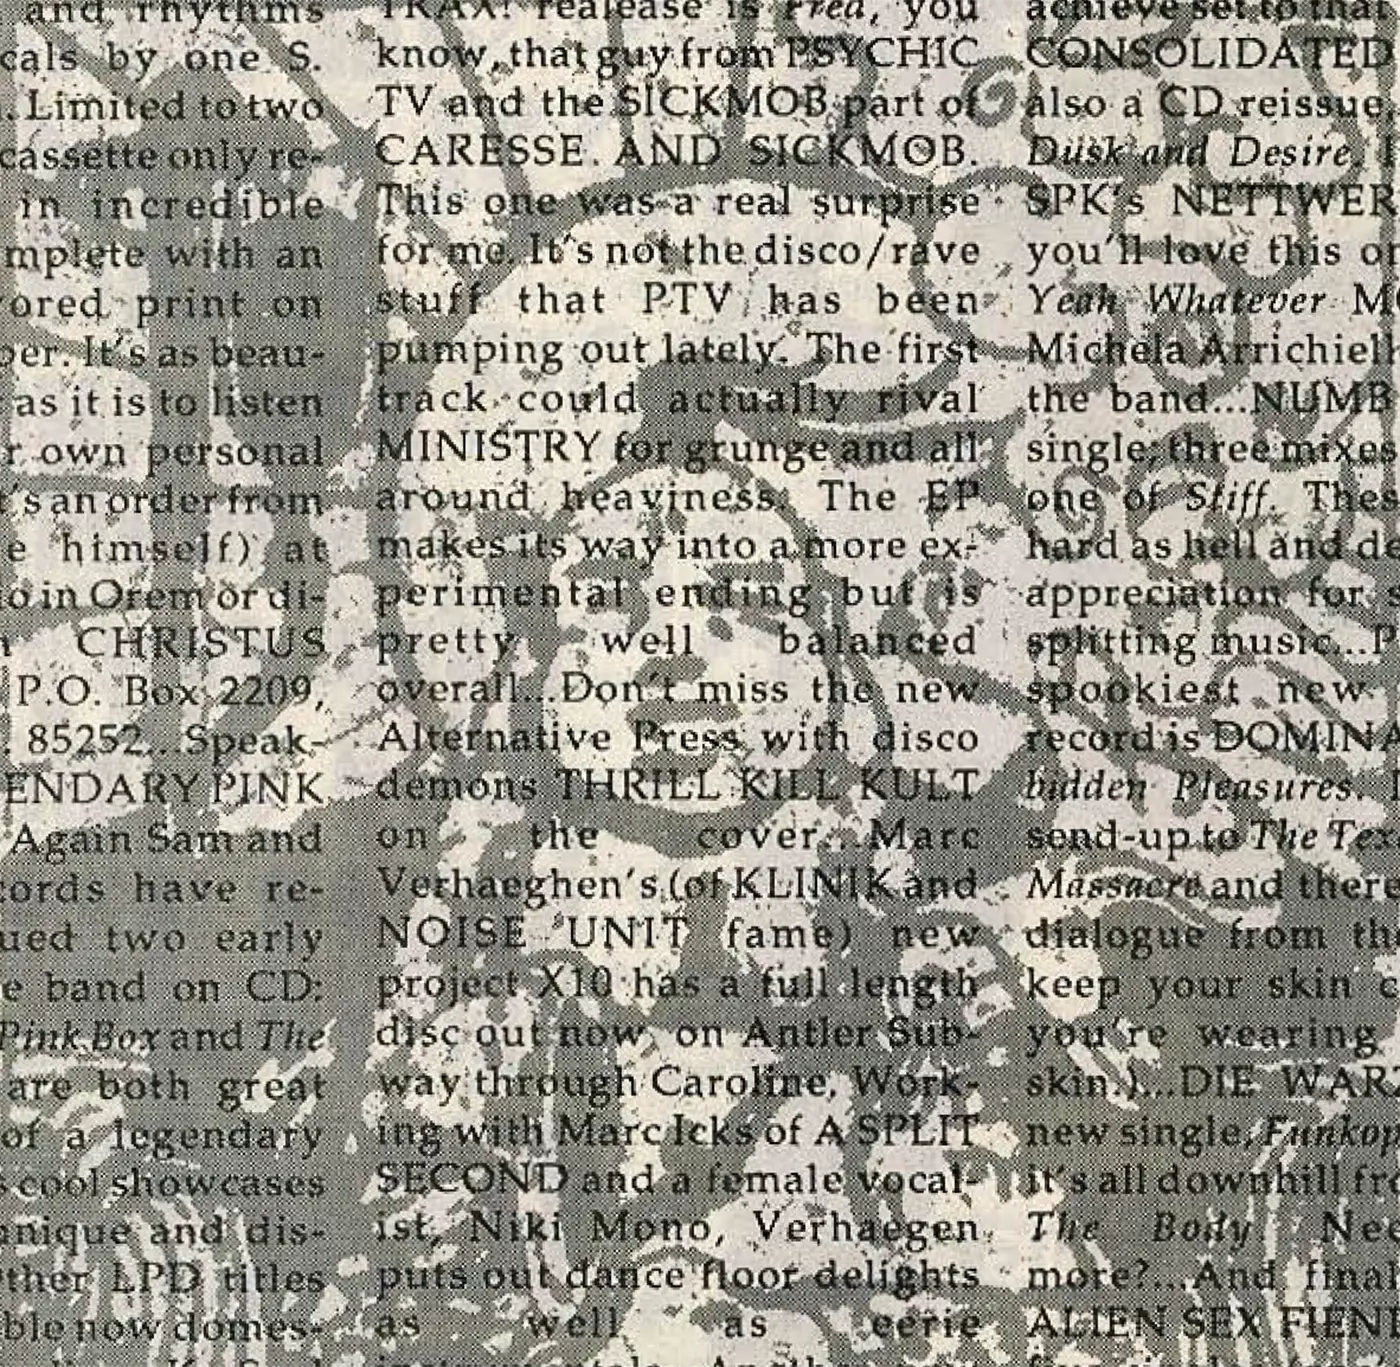 and rhythms
cals by one S.
. Limited to two
cassette only re-
in incredible
mplete with an
ored print on
per. It's as beau-
as it is to listen
r own personal
t's an order from
e himself) at
io in Orem or di-
CHRISTUS
P.O. Box 2209,
. 85252...Speak-
ENDARY PINK
Again Sam and
cords have re-
ued two early
e band on CD:
Pink Box and The
are both great
of a legendary
s cool showcases
nique and dis-
ther LPD titles
ble now domes-
TRAX! realease is Fred, you
know, that guy from PSYCHIC
TV and the SICKMOB part of
CARESSE AND SICKMOB.
This one was a real surprise
for me. It's not the disco/rave
stuff that PTV has been
pumping out lately. The first
track could actually rival
MINISTRY for grunge and all
around heaviness. The EP
makes its way into a more ex-
perimental ending but is
pretty well balanced
overall...Don't miss the new
Alternative Press with disco
demons THRILL KILL KULT
on the cover...Marc
Verhaeghen's (of KLINIK and
NOISE UNIT fame) new
project X10 has a full length
disc out now on Antler Sub-
way through Caroline. Work-
ing with Marc Icks of A SPLIT
SECOND and a female vocal-
ist, Niki Mono, Verhaegen
puts out dance floor delights
as well as eerie
achieve set to that
CONSOLIDATED
also a CD reissue
Dusk and Desire.
SPK's NETTWER
you'll love this o
Yeah Whatever M
Michela Arrichiell
the band...NUMB
single; three mixes
one of Stiff. Thes
hard as hell and de
appreciation for
splitting music...P
spookiest new
record is DOMINA
bidden Pleasures.
send-up to The Tex
Massacre and there
dialogue from th
keep your skin
you're wearing
skin.)...DIE WAR
new single, Funkop
it's all downhill fr
The Body. Nee
more?...And final
ALIEN SEX FIEN